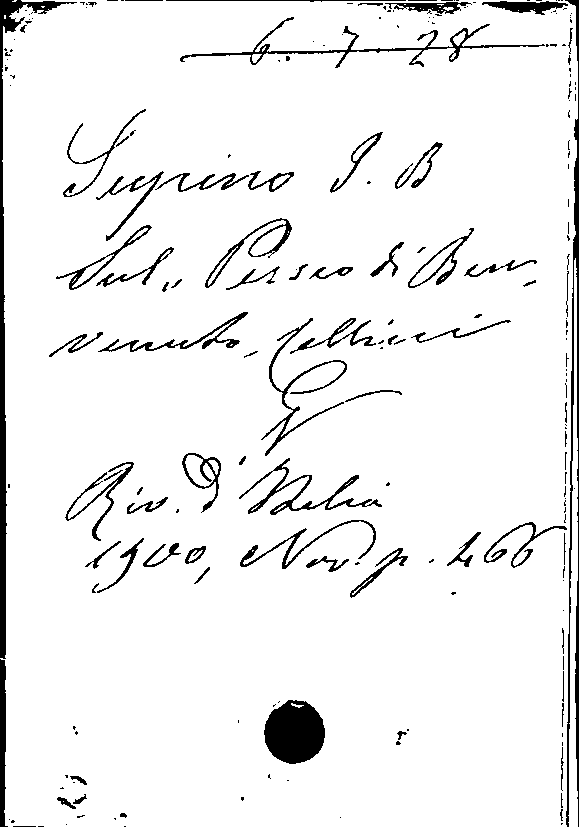 6. 7. 28
Supino I. B
Sul „ Perseo di Ben-
venuto Cellini
Riv. d' Italia
1900, Nov. p. 466